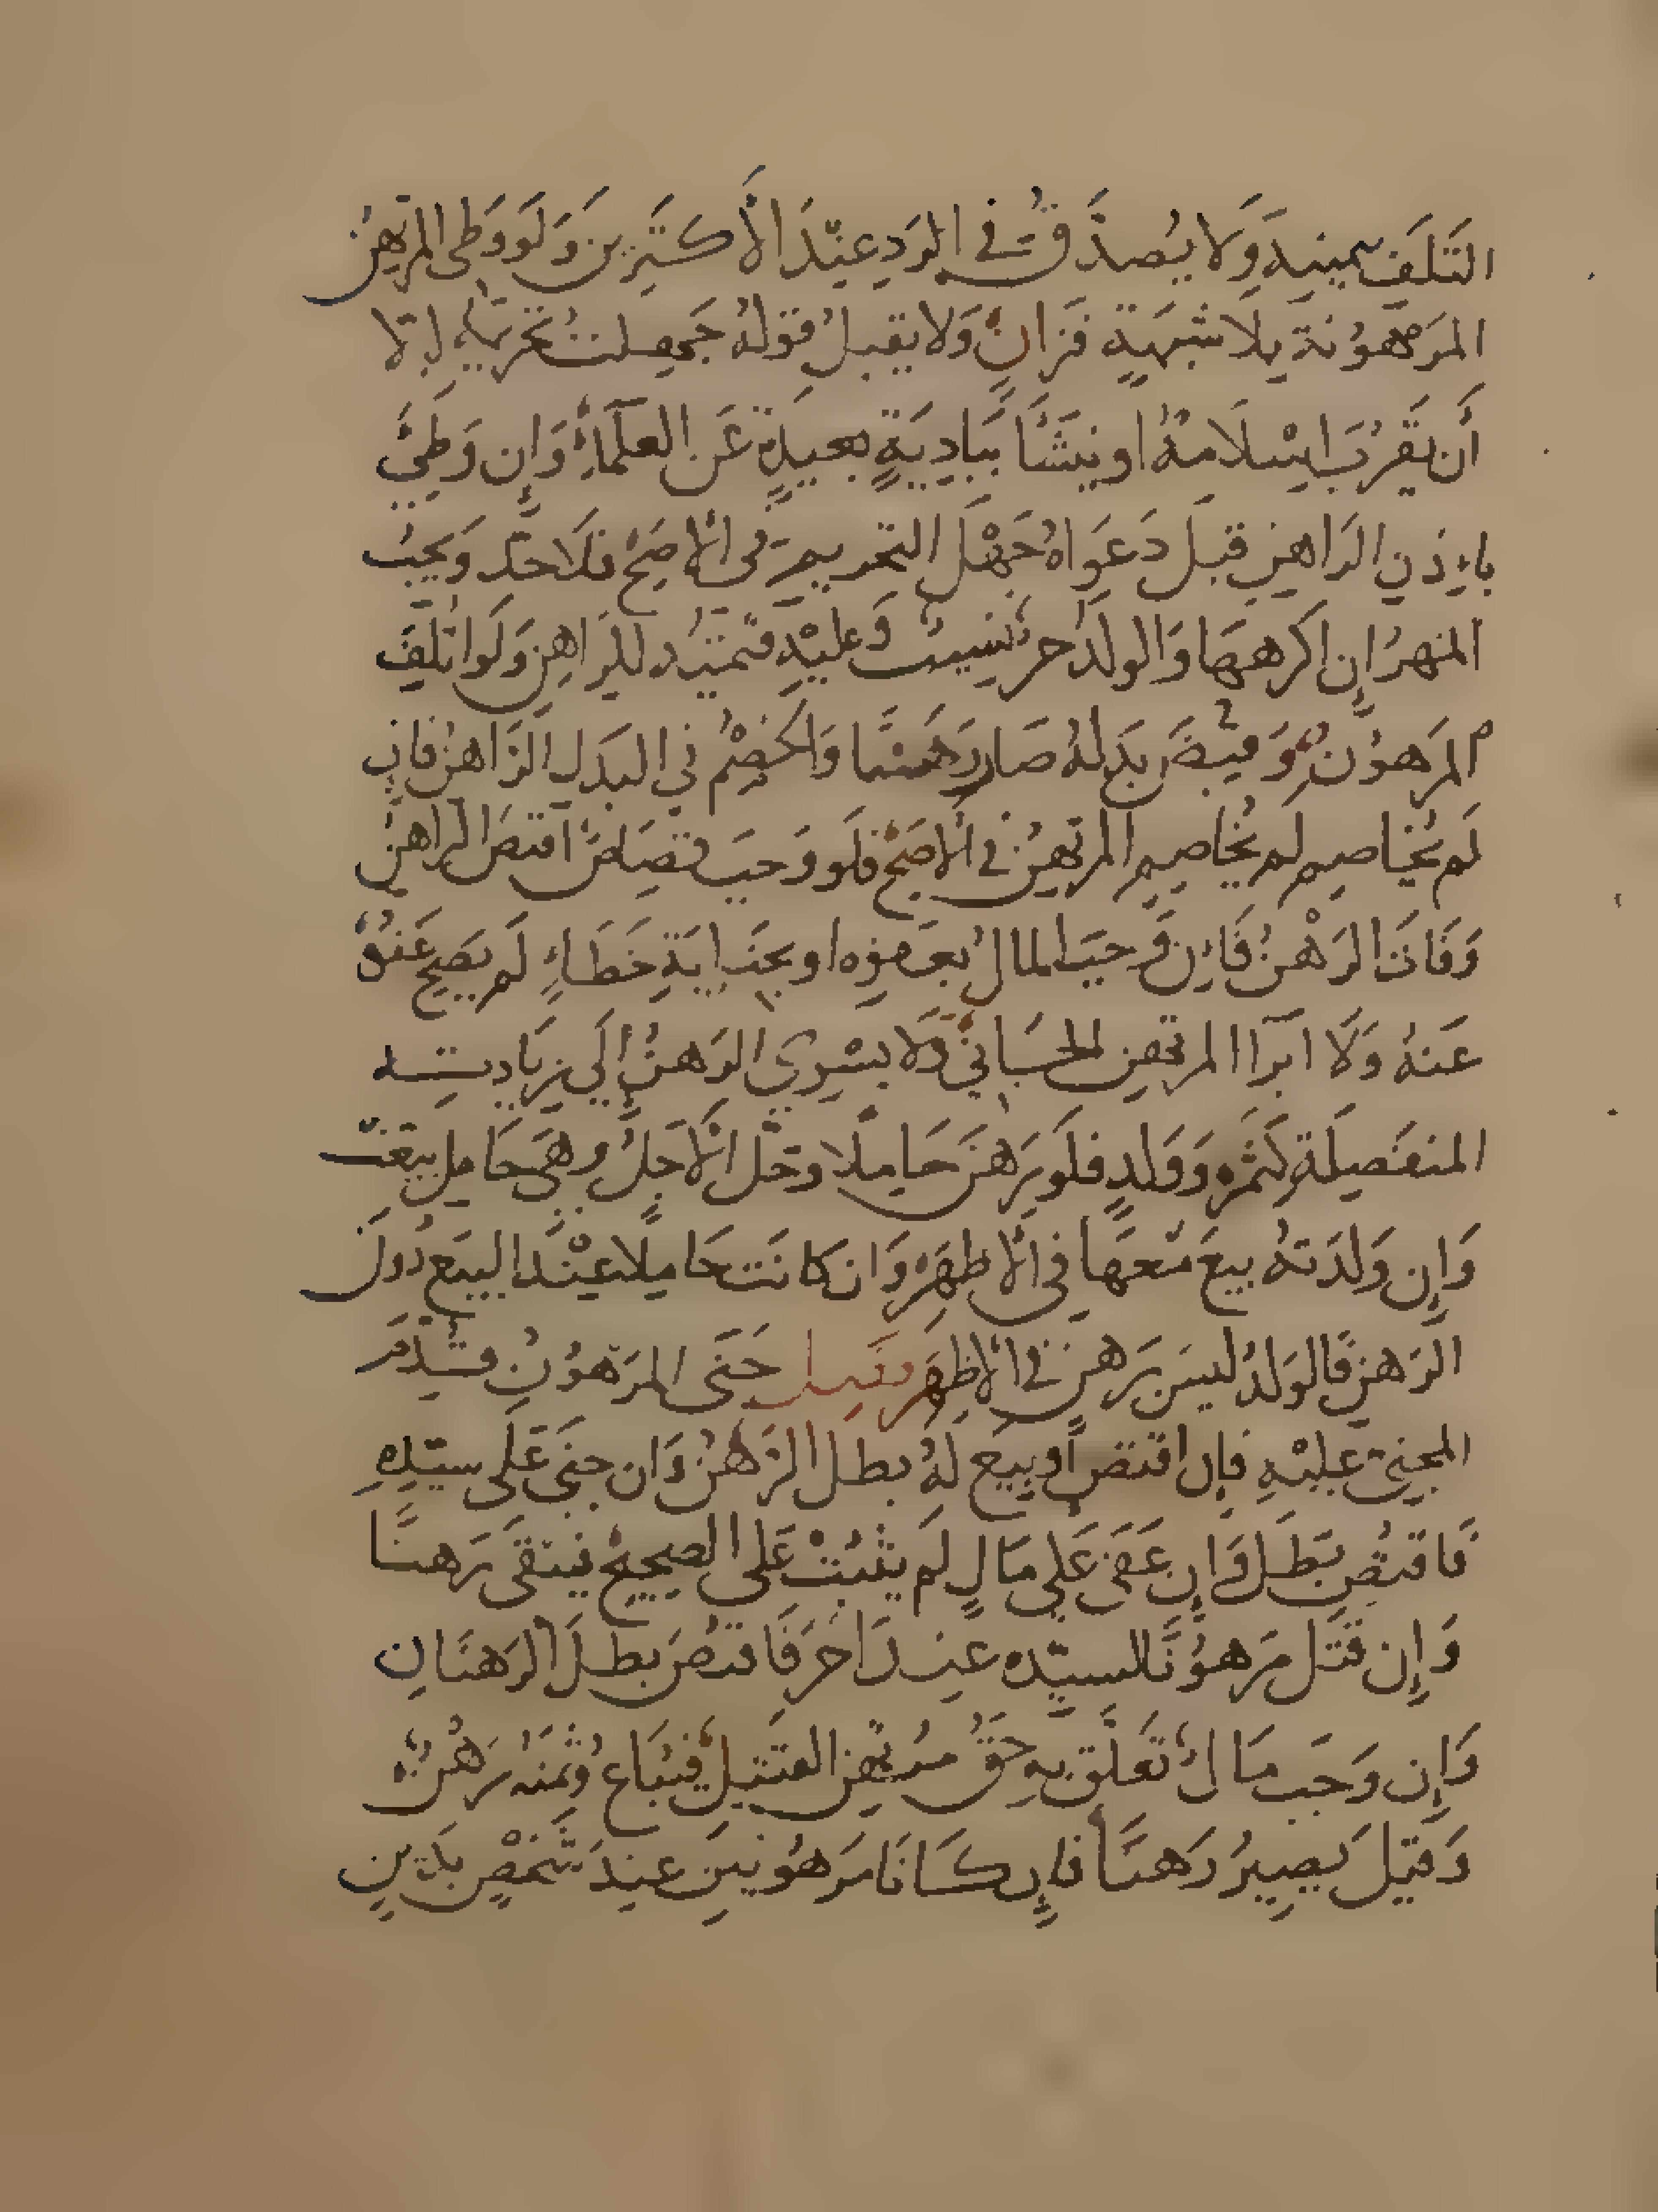 التَلَفَ بيمينِهِ وَلا يُصدَّقُ فِي الردِ عِندَ الأكثَرِين وَلَو وَطِى المرتَهِنُ
المَرهُونَة بِلا شُبهَةٍ فَزَانٍ وَلا يقبلُ قولُهُ جَهِلتُ تحريمَهُ اِلا
أن يَقرُبَ اِسْلامُهُ او يَنشَأَ بِبَادِيَةٍ بعيدةٍ عَن العلَمَاءِ وَإن وَطِئَ
باِذنِ الرَاهِنِ قبلَ دَعوَاهُ جَهْلَ التحريم في الأصَحِ فلَا حدَّ وَيجبُ
المهرُ اِن اكرهها وَالولدُ حرٌ نسيبٌ وَعليْهِ قيمتُه للرَاهِنِ وَلَو اتلفَ
المَرهُونُ وَقبضَ بَدَلُهُ صَار رَهنًا وَالخَصْمُ في البَدَلِ الرَاهنُ فان
لَم يُخاصِم لَم يُخَاصِم المرتَهِنُ في الأصَحِ فلَو وَجبَ قصَاصٌ اقتصَ الراهنُ
وَفَاتَ الرَهْنُ فَاِن وَجبَ المالُ بعفوِه او بجنَايَةِ خَطَاءٍ لَم يَصِح عَفوُهُ
عَنهُ وَلَا ابرَا المرتهن الجَاني وَلا يسْرِي الرَهنُ إلَى زيَادتِه
المنفَصِلَة كَثمَره وَوَلدٍ فلَو رَهنَ حَامِلًا وحَل الأجلُ وهيَ حَامِل بيعَت
وَإِن وَلَدَتهُ بِيعَ مَعهَا في الأظهَرِ وَان كانَت حَامِلًا عِنْدَ البيعِ دُونَ
الرَهنِ فَالوَلدُ ليسَ بَرهنٍ في الأظهَرِ فصل جَنَى المرَهُونُ قُدِّمَ
المجنِيّ عليْهِ فإن اقتصَ أو بِيعَ لَهُ بطلَ الرَهنُ وَان جنَى عَلَى سيّدِهِ
فَاقتُصَ بَطَلَ وَان عَفَى عَلى مَالٍ لَم يثبُتْ عَلَى الصحيحِ فيَبقَى رَهنًا
وَإن قَتَلَ مَرهُونًا لسيِّده عندَ اخَر فَاقتُصَ بطلَ الرَهنَانِ
وَإن وَجَبَ مَالٌ تعلَّق بهِ حقُ مُرتَهِن القَتيلِ فيُبَاع وَثمنُه رَهنٌ
وَقيلَ يَصِيرُ رَهنًا فإن كَانَا مَرهُونَين عِندَ شَخصٍ بدَينٍ